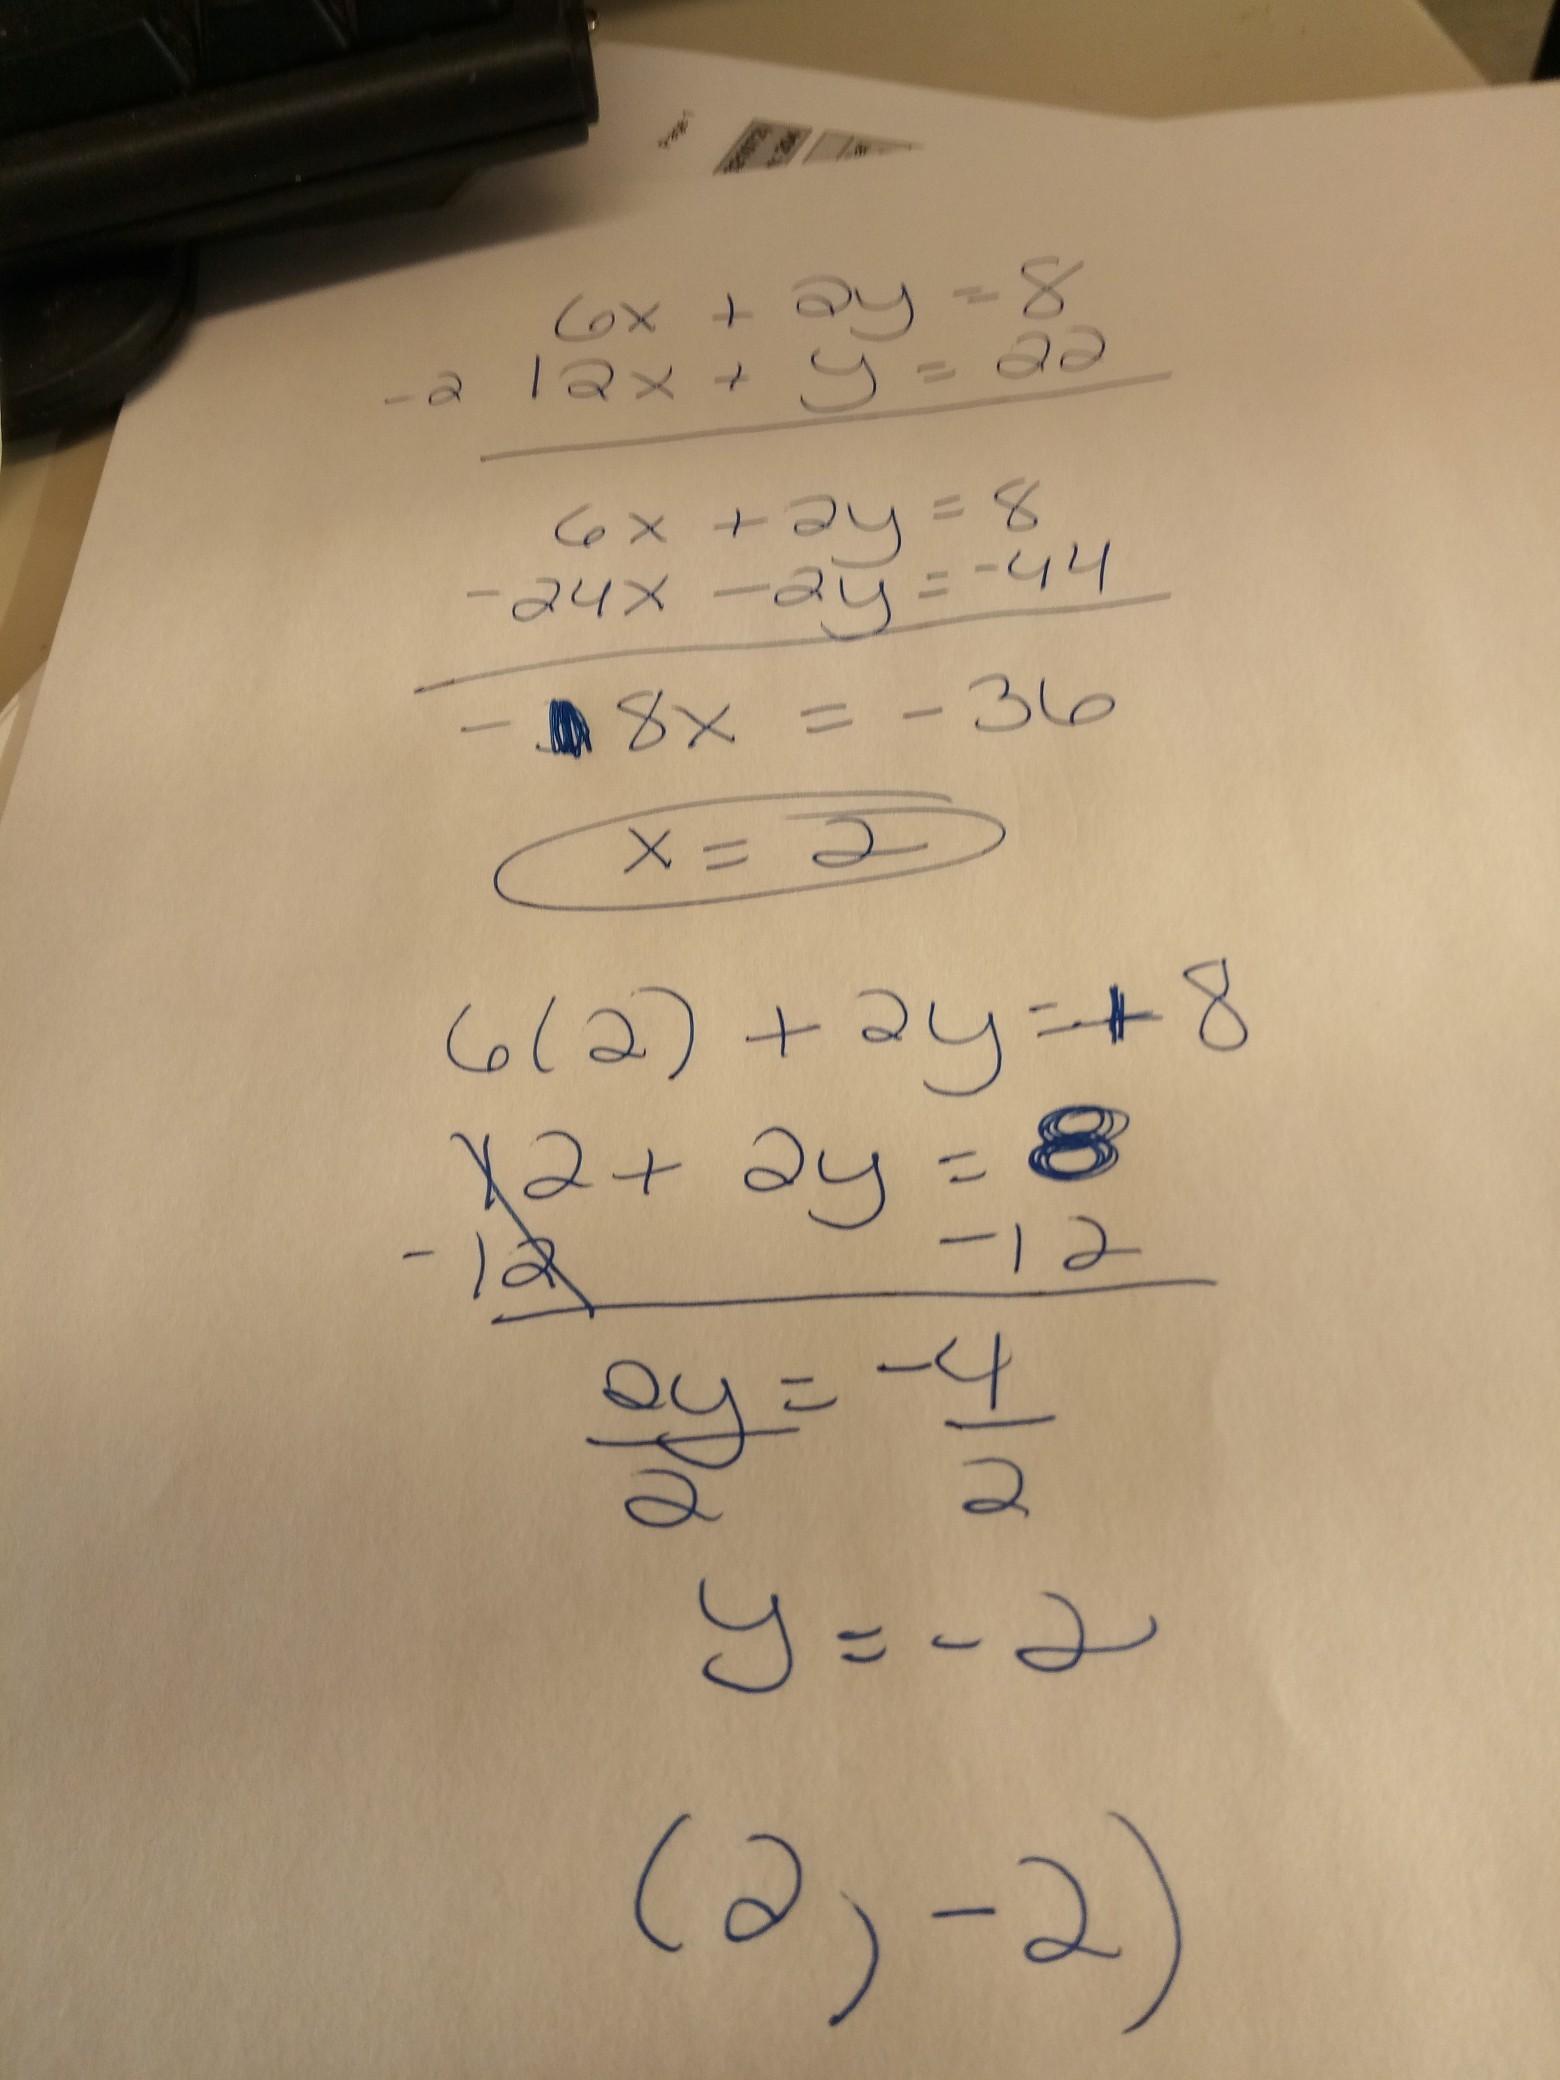 6x + 2y = 8
-2 12x + y = 22
6x + 2y = 8
-24x - 2y = -44
- 18x = -36
x = 2
6(2) + 2y = + 8
12 + 2y = 8
-12 -12
2y = -4
2 2
y = -2
(2, -2)